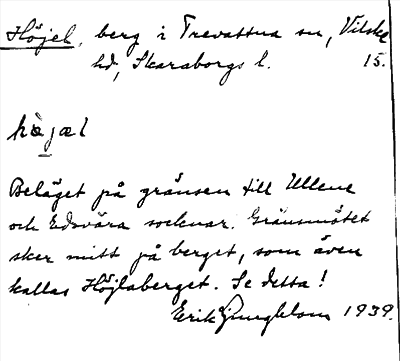 Höjel, berg i Trevattna sn, Vilske
hd, Skaraborgs l. 15.
hæ̀jæl
Beläget på gränsen till Ullene
och Edsvära socknar. Gränsmötet
sker mitt på berget, som även
kallas Höjlaberget. Se detta!
Erik Ljungblom 1939.